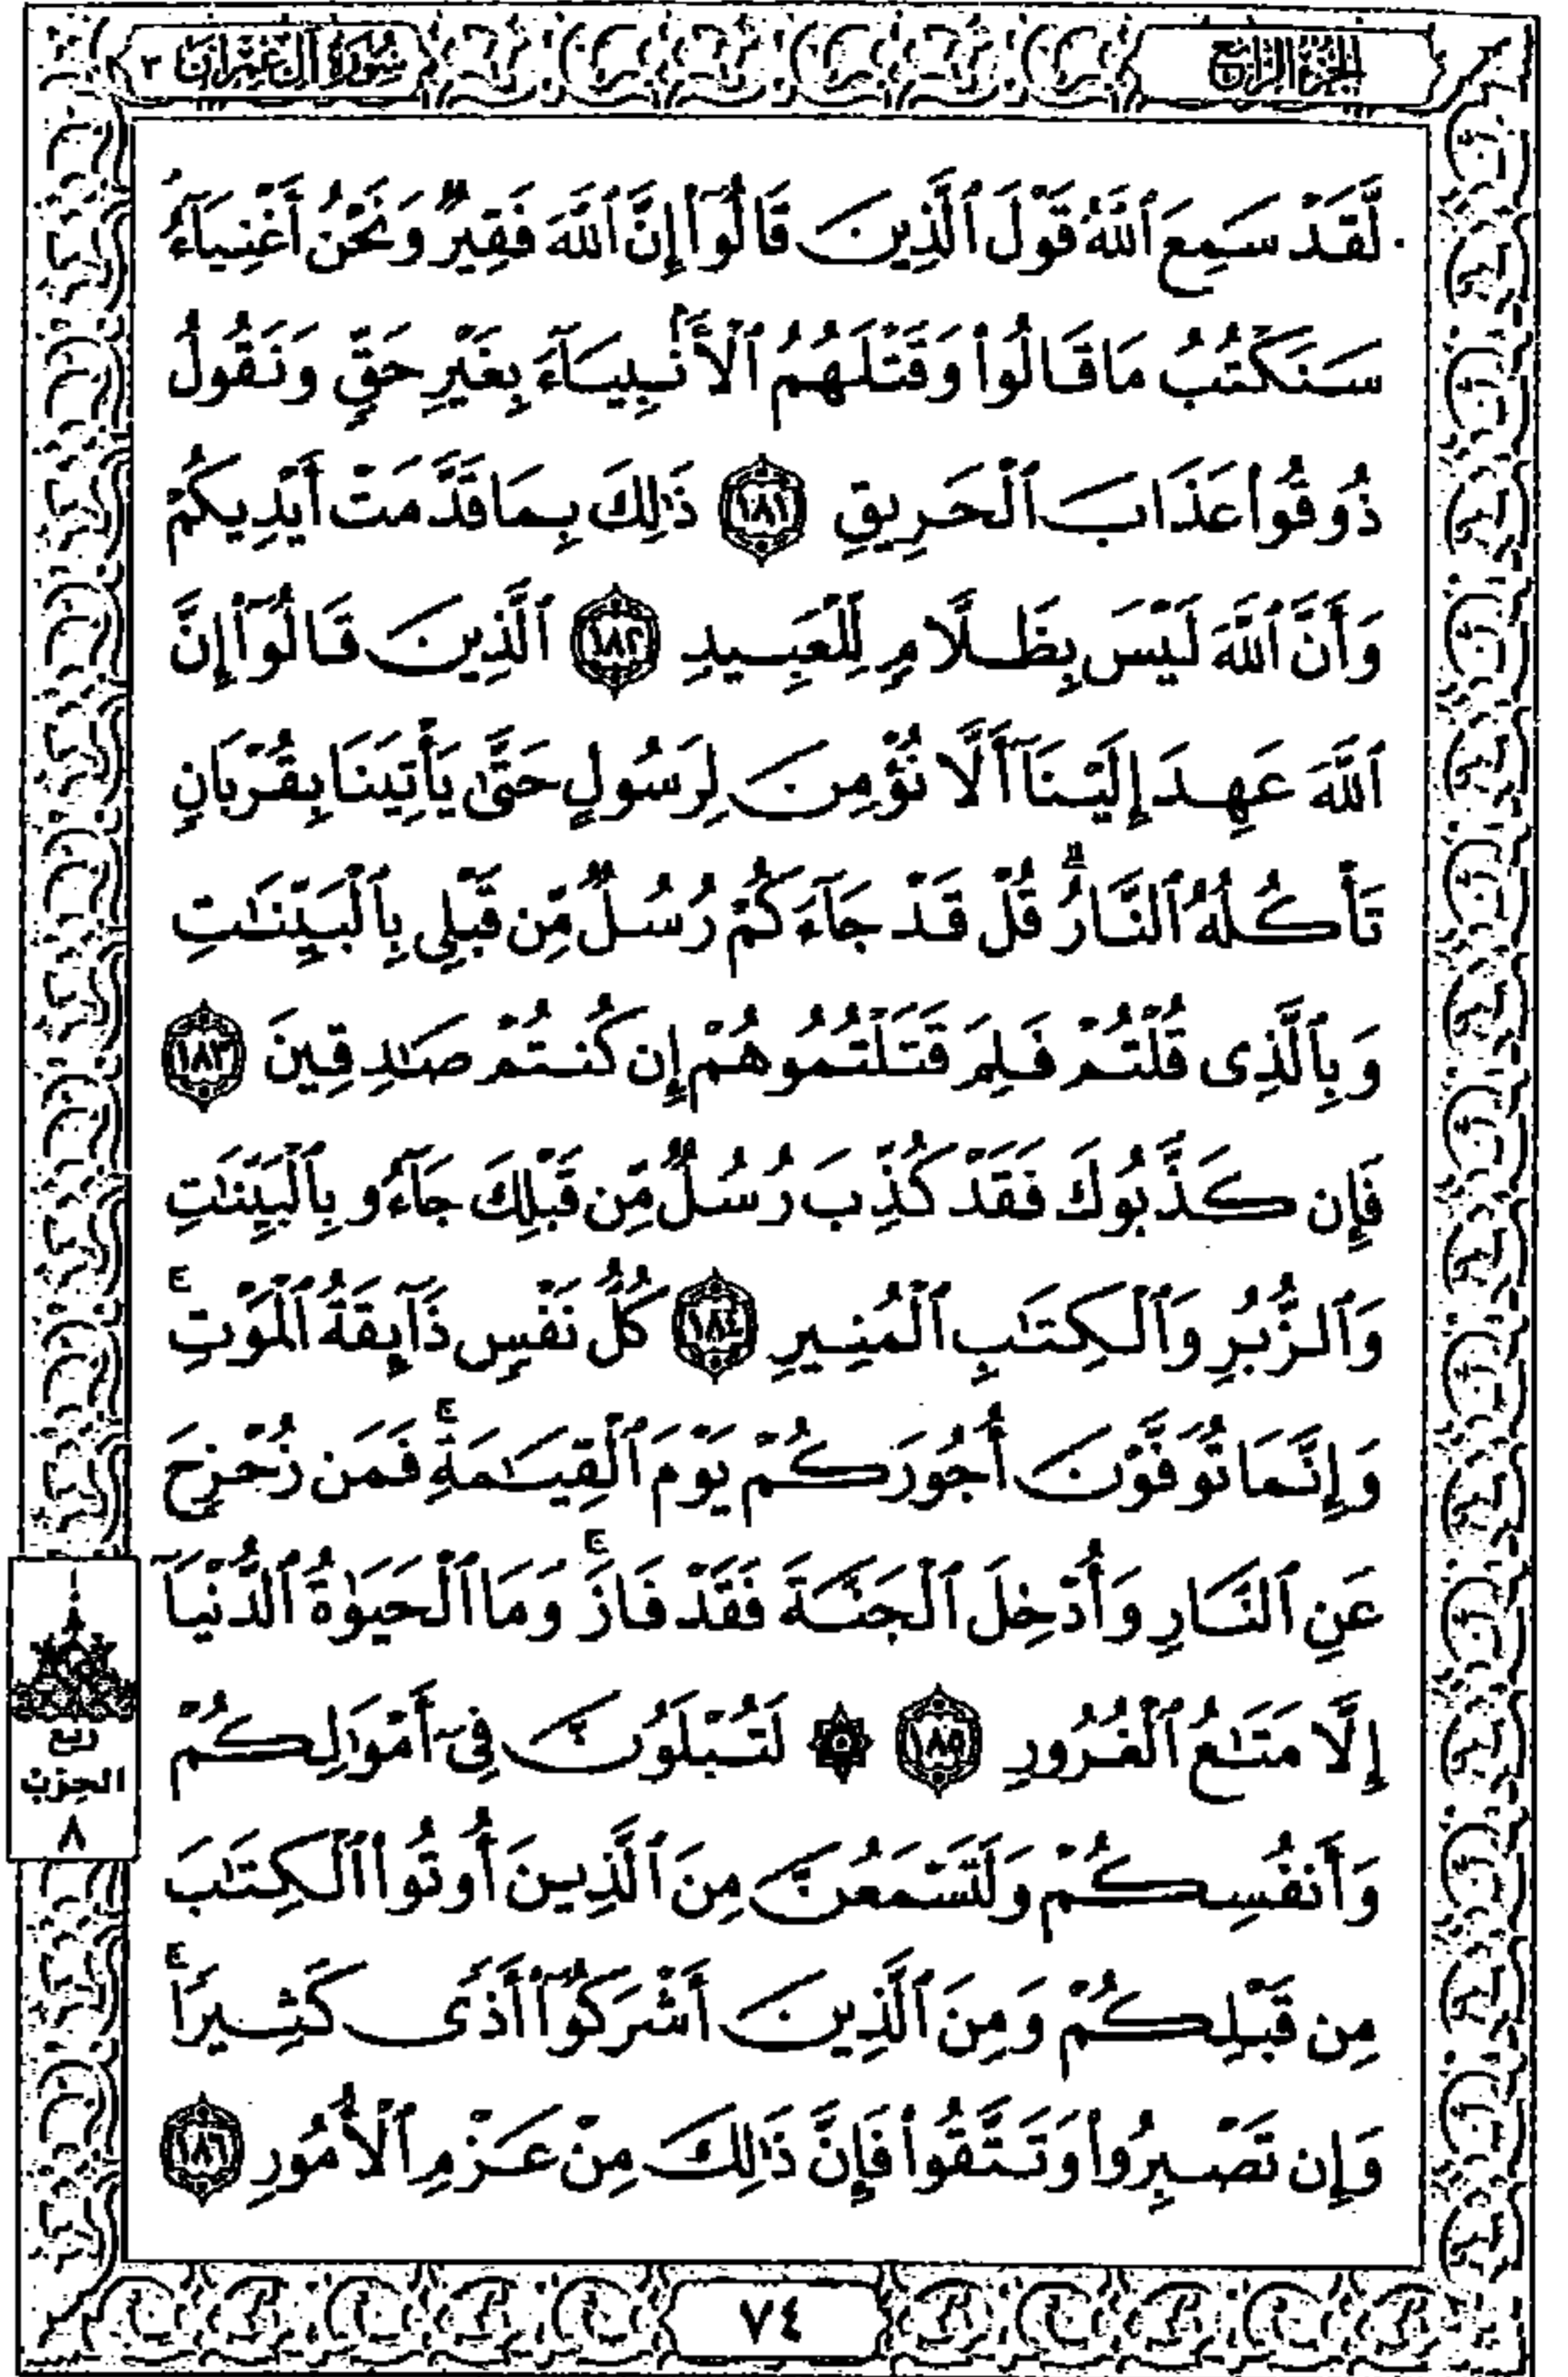 الجزء الرابع
سورة آل عمران ٣
لَّقَدْ سَمِعَ ٱللَّهُ قَوْلَ ٱلَّذِينَ قَالُوٓا۟ إِنَّ ٱللَّهَ فَقِيرٌ وَنَحْنُ أَغْنِيَآءُ
سَنَكْتُبُ مَا قَالُوا۟ وَقَتْلَهُمُ ٱلْأَنۢبِيَآءَ بِغَيْرِ حَقٍّ وَنَقُولُ
ذُوقُوا۟ عَذَابَ ٱلْحَرِيقِ ١٨١ ذَٰلِكَ بِمَا قَدَّمَتْ أَيْدِيكُمْ
وَأَنَّ ٱللَّهَ لَيْسَ بِظَلَّامٍ لِّلْعَبِيدِ ١٨٢ ٱلَّذِينَ قَالُوٓا۟ إِنَّ
ٱللَّهَ عَهِدَ إِلَيْنَآ أَلَّا نُؤْمِنَ لِرَسُولٍ حَتَّىٰ يَأْتِيَنَا بِقُرْبَانٍ
تَأْكُلُهُ ٱلنَّارُ ۗ قُلْ قَدْ جَآءَكُمْ رُسُلٌ مِّن قَبْلِى بِٱلْبَيِّنَٰتِ
وَبِٱلَّذِى قُلْتُمْ فَلِمَ قَتَلْتُمُوهُمْ إِن كُنتُمْ صَٰدِقِينَ ١٨٣
فَإِن كَذَّبُوكَ فَقَدْ كُذِّبَ رُسُلٌ مِّن قَبْلِكَ جَآءُو بِٱلْبَيِّنَٰتِ
وَٱلزُّبُرِ وَٱلْكِتَٰبِ ٱلْمُنِيرِ ١٨٤ كُلُّ نَفْسٍ ذَآئِقَةُ ٱلْمَوْتِ ۗ
وَإِنَّمَا تُوَفَّوْنَ أُجُورَكُمْ يَوْمَ ٱلْقِيَٰمَةِ ۖ فَمَن زُحْزِحَ
عَنِ ٱلنَّارِ وَأُدْخِلَ ٱلْجَنَّةَ فَقَدْ فَازَ ۗ وَمَا ٱلْحَيَوٰةُ ٱلدُّنْيَآ
إِلَّا مَتَٰعُ ٱلْغُرُورِ ١٨٥ ۞ لَتُبْلَوُنَّ فِىٓ أَمْوَٰلِكُمْ
وَأَنفُسِكُمْ وَلَتَسْمَعُنَّ مِنَ ٱلَّذِينَ أُوتُوا۟ ٱلْكِتَٰبَ
مِن قَبْلِكُمْ وَمِنَ ٱلَّذِينَ أَشْرَكُوٓا۟ أَذًى كَثِيرًا ۚ
وَإِن تَصْبِرُوا۟ وَتَتَّقُوا۟ فَإِنَّ ذَٰلِكَ مِنْ عَزْمِ ٱلْأُمُورِ ١٨٦
ربع
الحزب
٨
٧٤